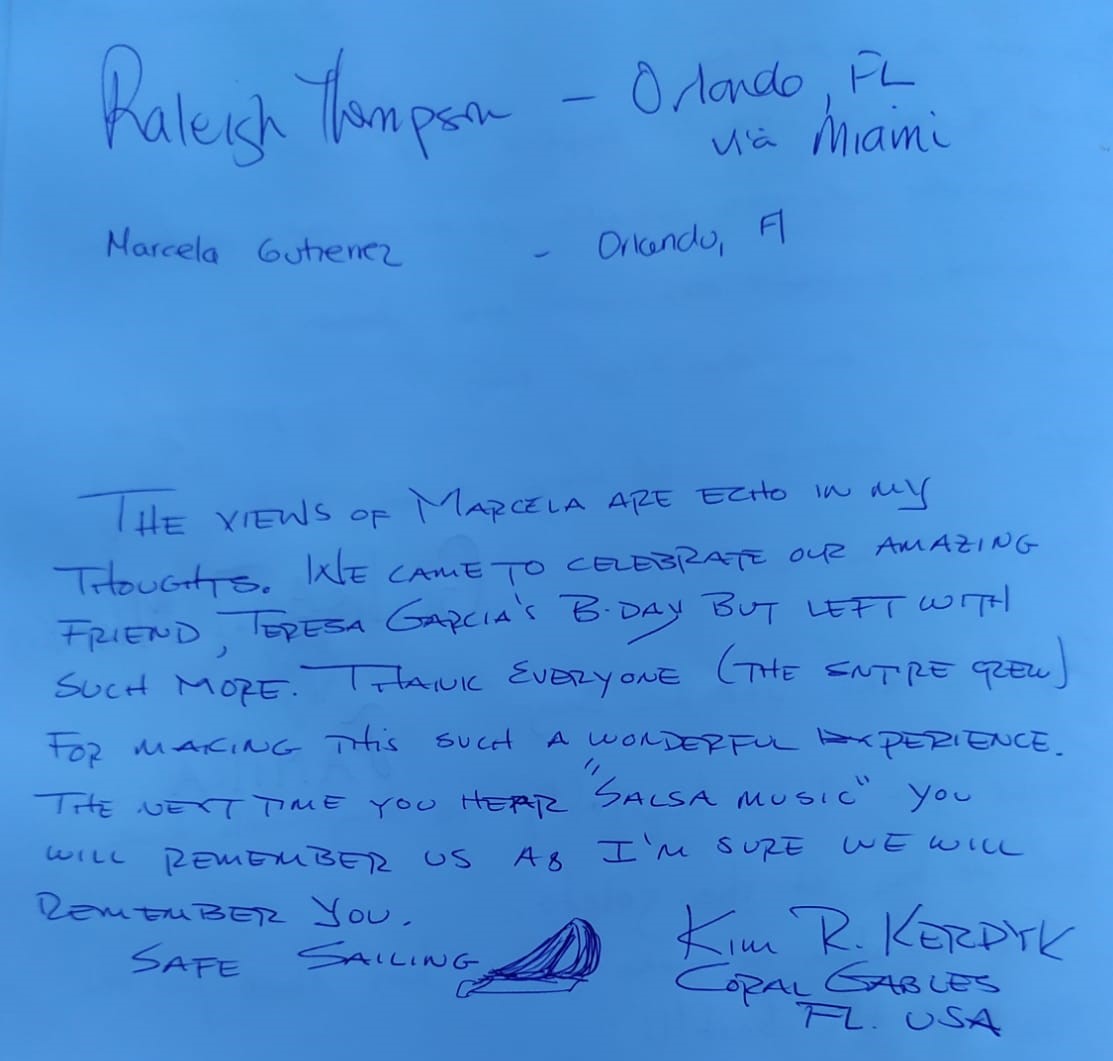 Raleigh Thompson - Orlando, FL
via Miami
Marcela Gutierrez - Orlando, Fl
THE VIEWS OF MARCELA ARE ECHO IN MY
THOUGHTS. WE CAME TO CELEBRATE OUR AMAZING
FRIEND, TERESA GARCIA'S B-DAY BUT LEFT WITH
SUCH MORE. THANK EVERYONE (THE ENTIRE CREW)
FOR MAKING THIS SUCH A WONDERFUL EXPERIENCE.
THE NEXT TIME YOU HEAR "SALSA MUSIC" YOU
WILL REMEMBER US AS I'M SURE WE WILL
REMEMBER YOU.
SAFE SAILING
KIM R. KERDYK
CORAL GABLES
FL. USA